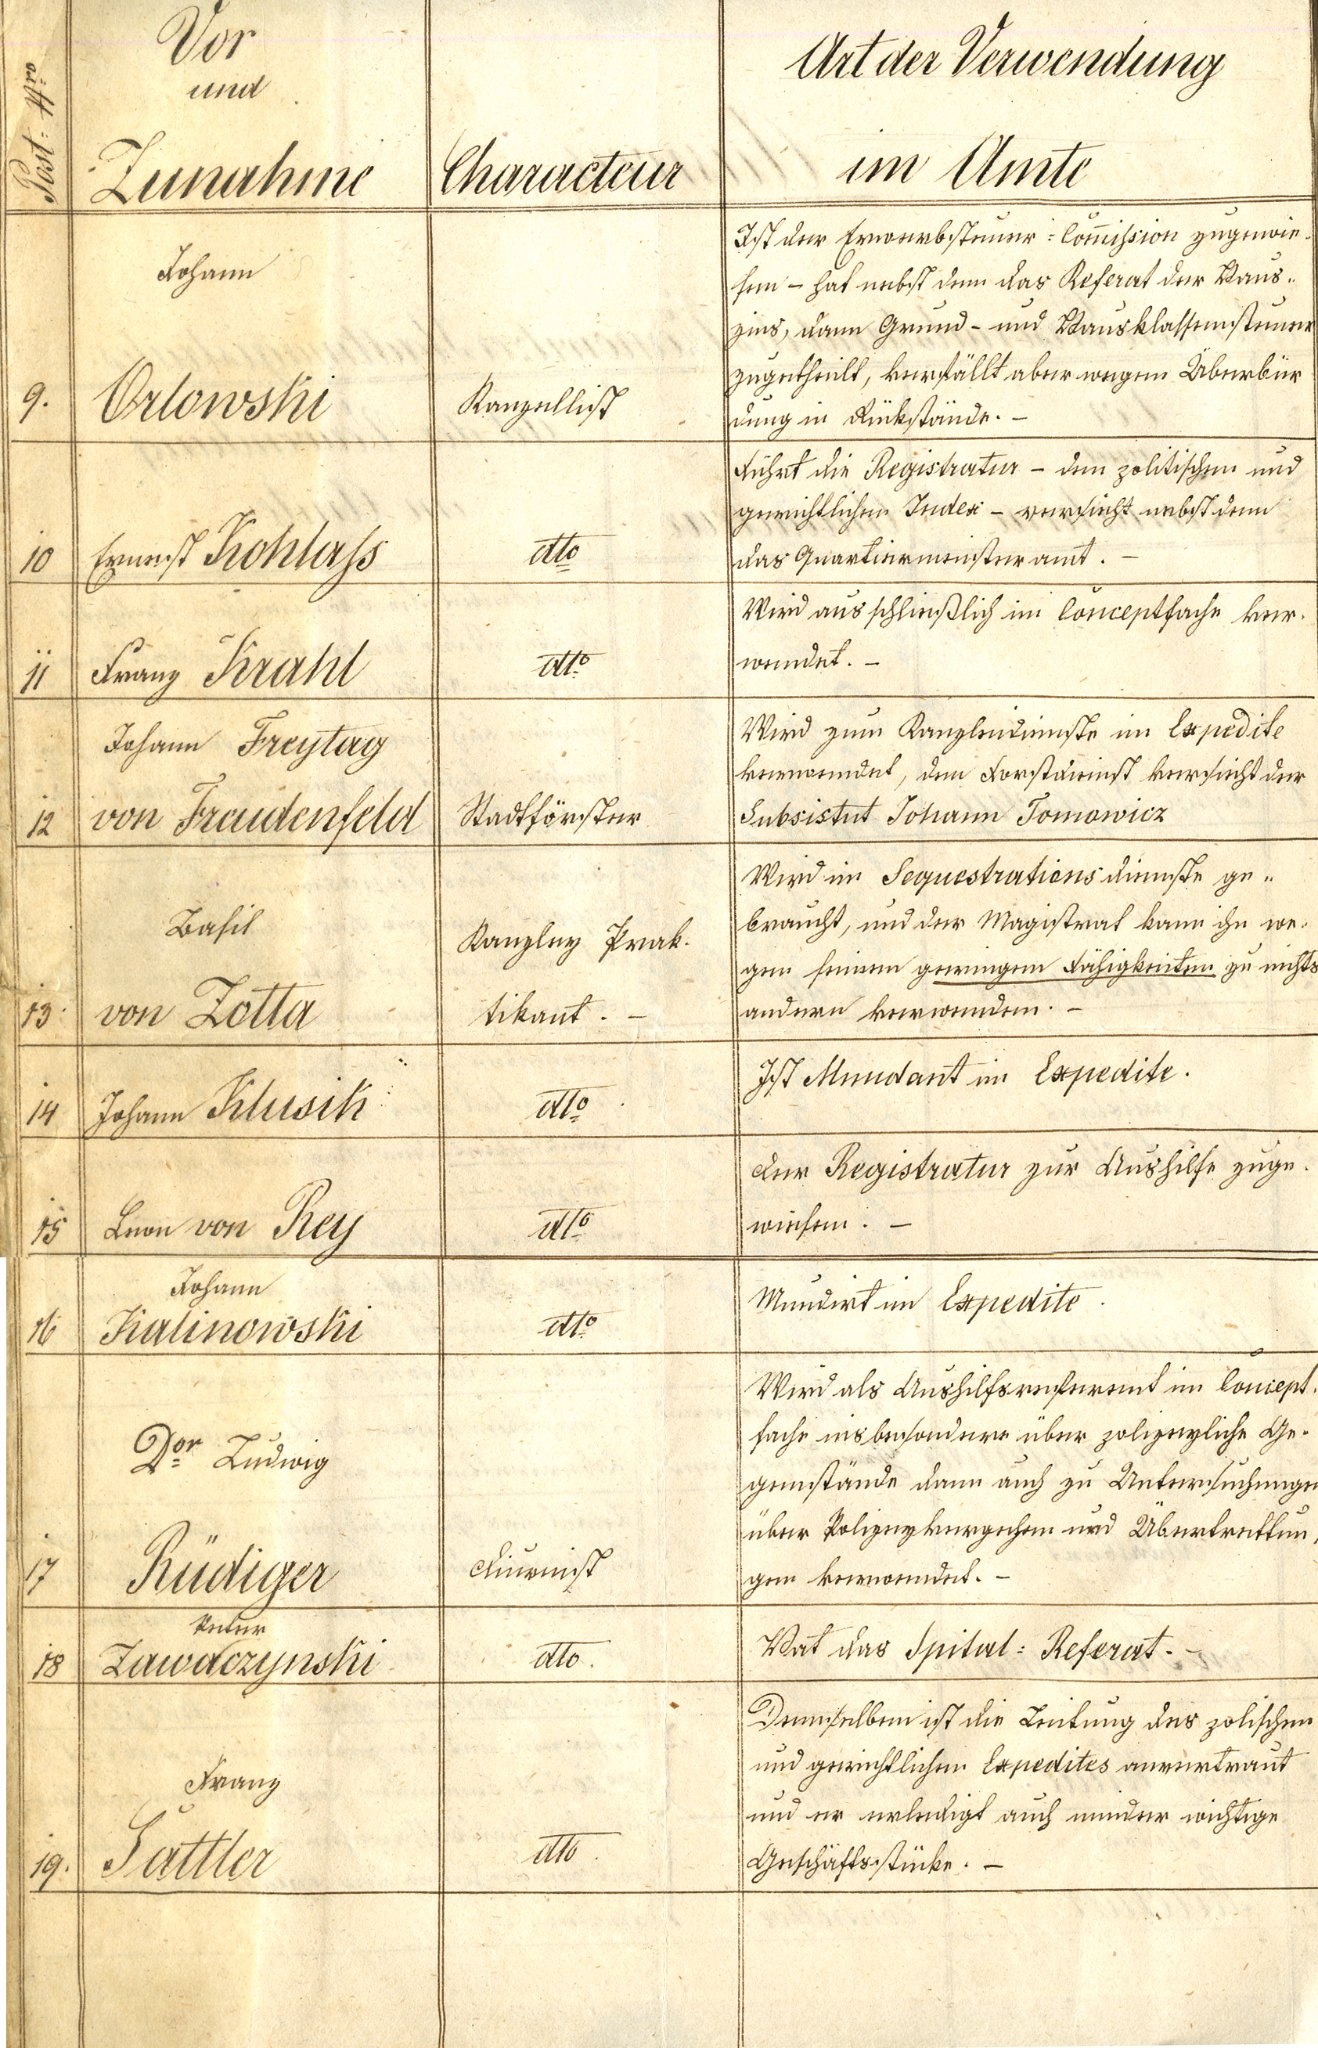 Post: Nro
Vor
und
Zunahme
Characteur
Art der Verwendung
im Amte
9.
Johann
Orlowski
Kanzellist
Ist der Erwerbsteuer-Com̄ission zugewie-
sen – hat nebst dem das Referat der Haus-
zins, dann Grund- und Hausklassensteuer
zugetheilt, verfällt aber wegen Überbür
dung in Rükstände. –
10
Ernest Kohlass
dto
Führt die Registratur – den politischen und
gerichtlichen Index – versieht nebst dem
das Quartiermeisteramt. –
11
Franz Krahl
dto
Wird ausschließlich im Conceptfache ver-
wendet. –
12
Johann Freytag
von Fraudenfeld
Stadtförster
Wird zum Kanzleidienste im Expedite
verwendet, den Forstdienst versieht der
Subsistut Johann Tomowicz
13.
Basil
von Zotta
Kanzley Prak-
tikant. –
Wird im Sequestrationsdienste ge-
braucht, und der Magistrat kann ihn we-
gen seinen geringen Fähigkeiten zu nichts
andern verwenden. –
14
Johann Klusik
dto
Ist Mundant im Expedite.
15
Leon von Rey
dto
Der Registratur zur Aushilfe zuge-
wiesen. –
16
Johann
Kalinowski
dto
Mundirt im Expedite.
17
Dor Ludwig
Rüdiger
Diurnist
Wird als Aushilfsreferent im Concept-
fache insbesondere über polizeyliche Ge-
genstände dann auch zu Untersuchungen
über Polizeyvergehen und Übertrettun-
gen verwendet. –
18
Peter
Zawdczynski
dto.
Hat das Spital: Referat. –
19.
Franz
Sattler
dto.
Demselben ist die Leitung des polischen
und gerichtlichen Expedites anvertraut
und er erledigt auch minder wichtige
Geschäftsstücke. –